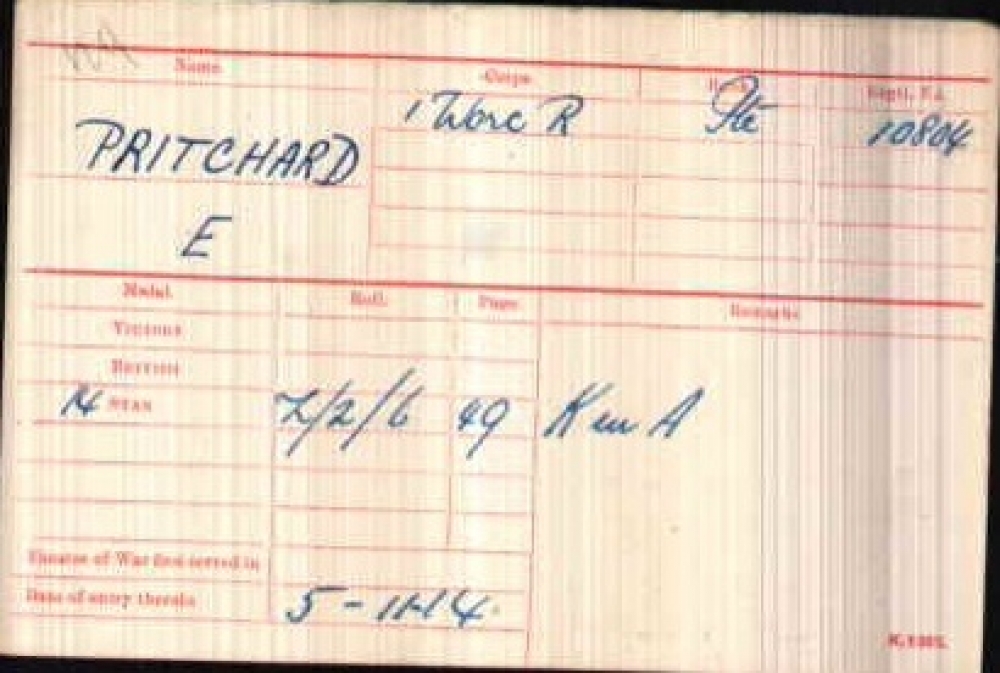 Name. Corps. Rank. Regtl. No.
PRITCHARD 1 Worc R Pte 10804
E
Medal. Roll. Page. Remarks.
VICTORY
BRITISH
14 STAR 2/2/6 49 K in A
Theatre of War first served in
Date of entry therein 5-11-14.
K.1380.